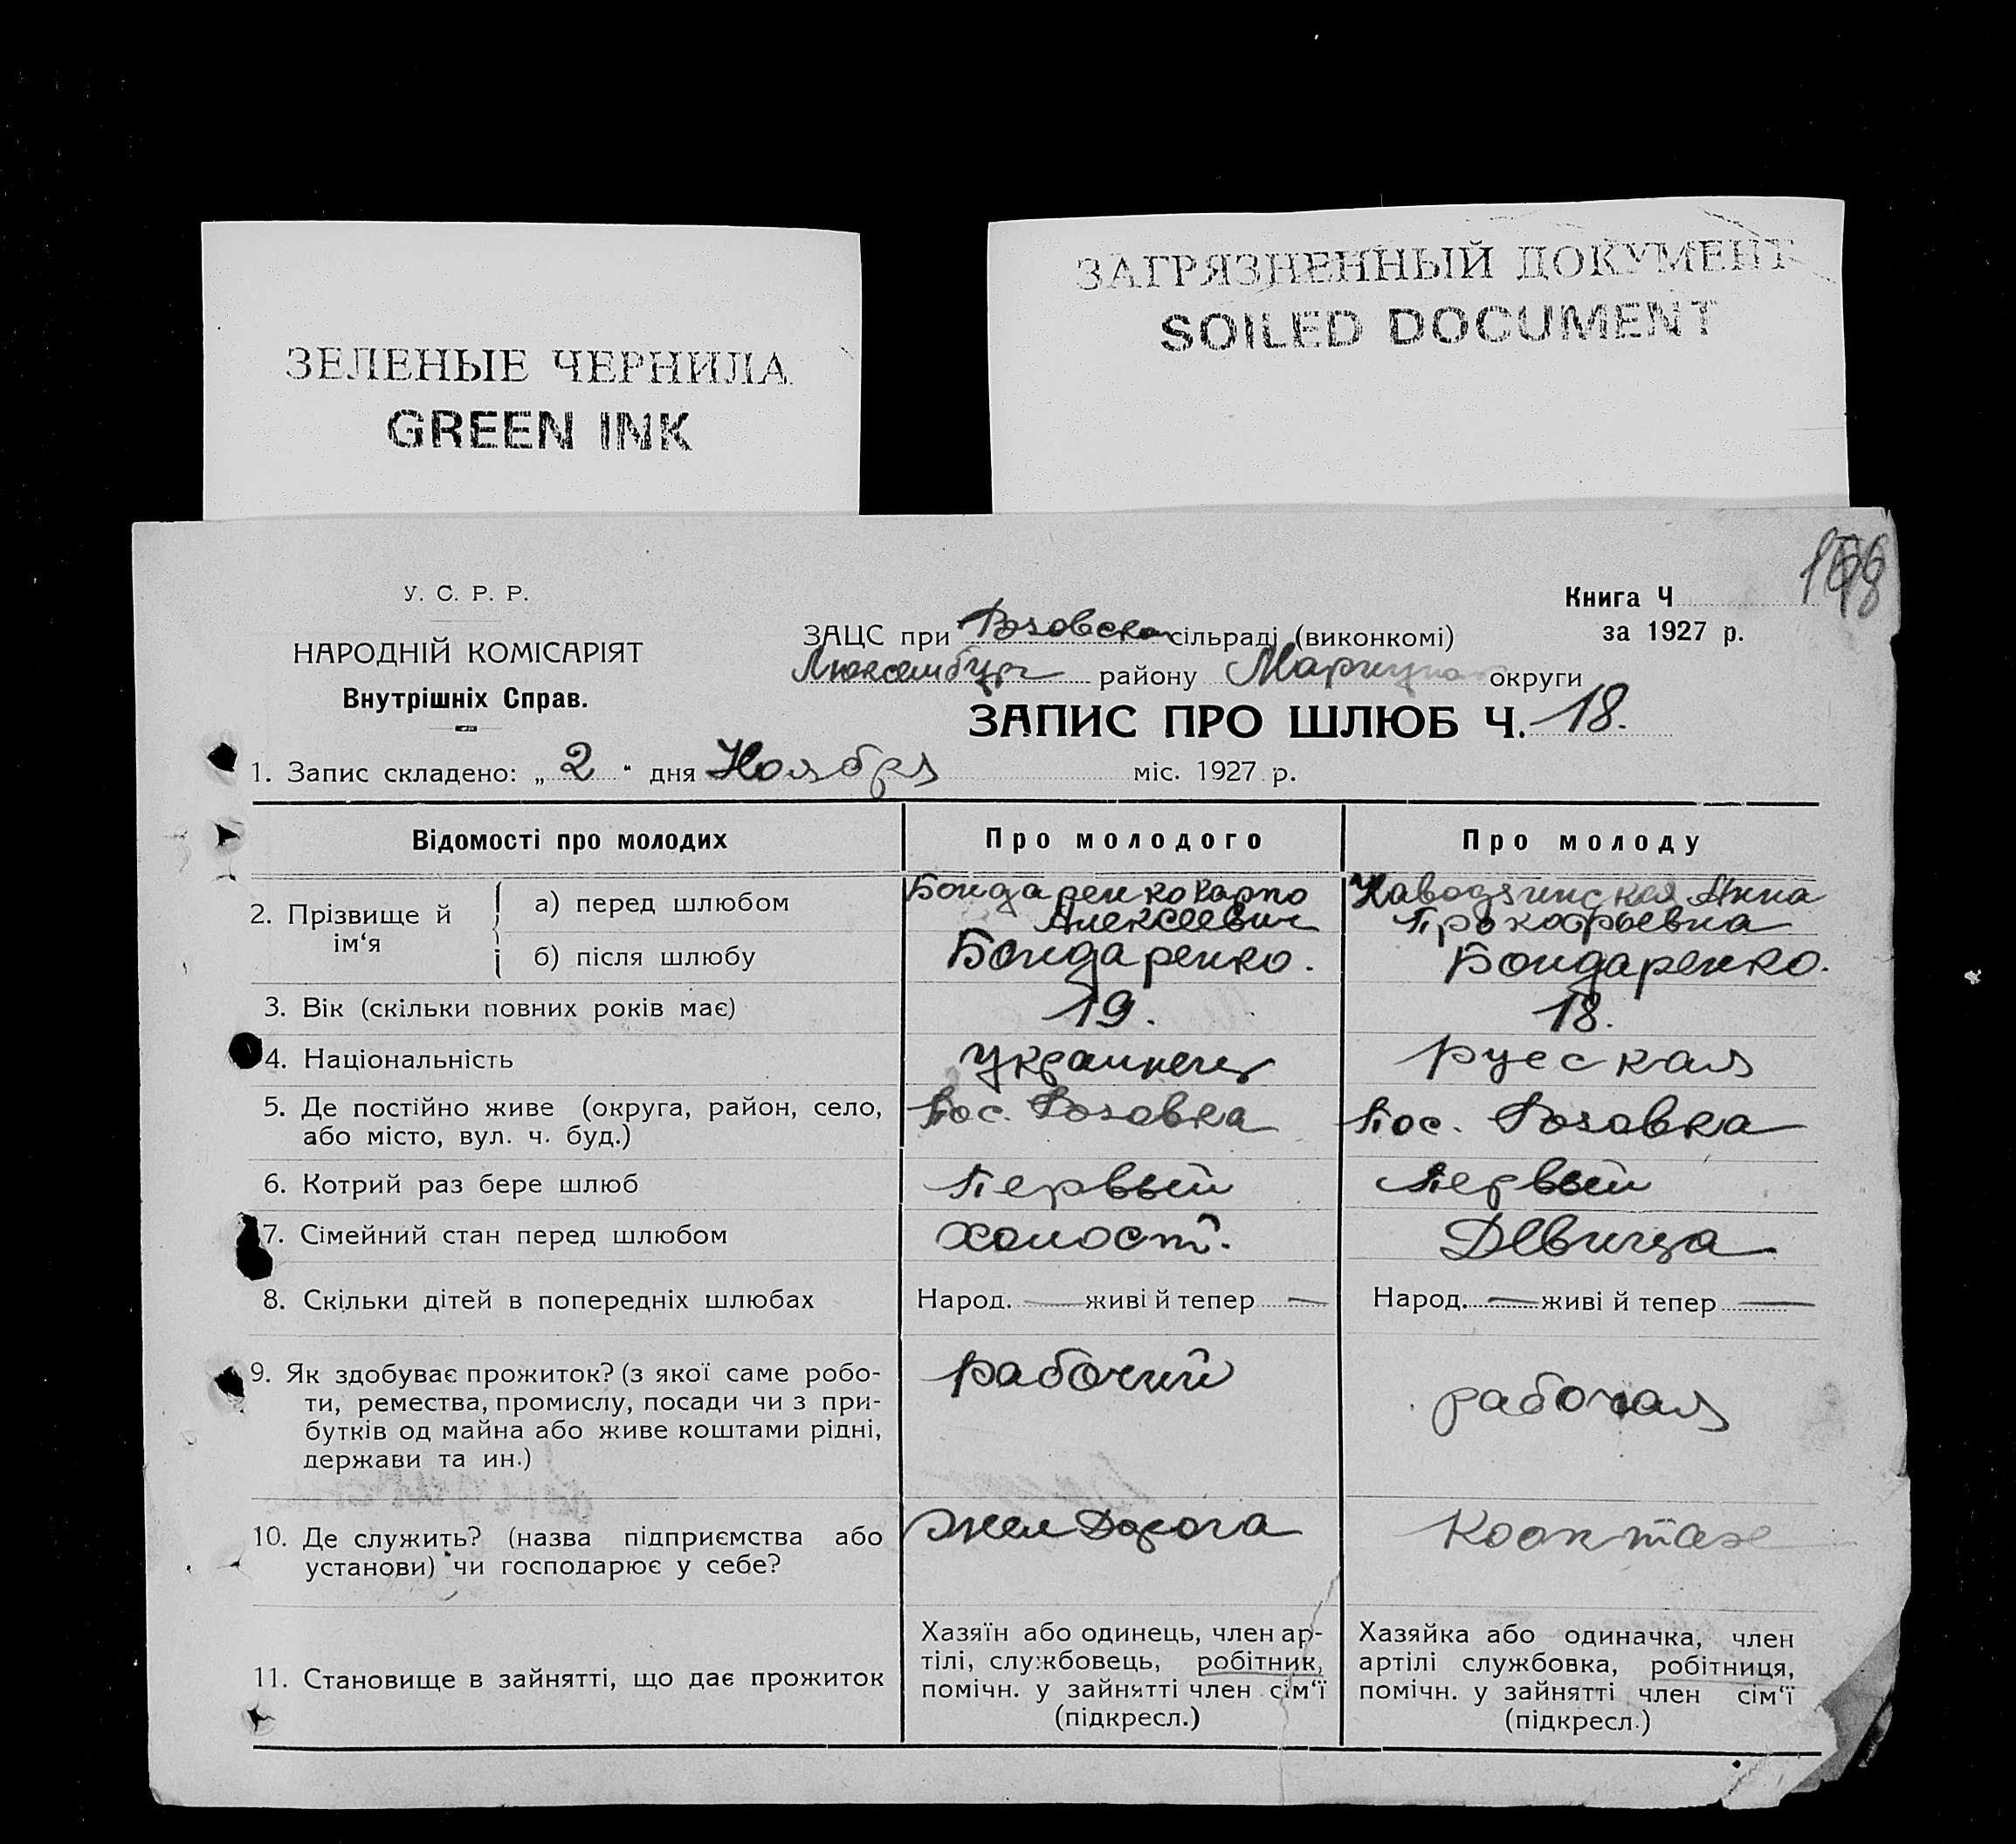 ЗЕЛЕНЫЕ ЧЕРНИЛА
GREEN INK
ЗАГРЯЗНЕННЫЙ ДОКУМЕНТ
SOILED DOCUMENT
У. С. Р. Р.
НАРОДНІЙ КОМІСАРІЯТ
Внутрішніх Справ.
Книга Ч
за 1927 р.
ЗАЦС при Розовском сільраді (виконкомі)
Люксембург району Мариупол округи
ЗАПИС ПРО ШЛЮБ Ч. 18.
1. Запис складено: „ 2 " дня Ноября міс. 1927 р.
Відомості про молодих Про молодого Про молоду
2. Прізвище й ім‘я
а) перед шлюбом Бондаренко Карпо Алексеевич Наводзинская Анна Прокофьевна
б) після шлюбу Бондаренко. Бондаренко.
3. Вік (скільки повних років має) 19. 18.
4. Національність украинец русская
5. Де постійно живе (округа, район, село,
або місто, вул. ч. буд.) Пос. Розовка Пос. Розовка
6. Котрий раз бере шлюб Первый Первый
7. Сімейний стан перед шлюбом холост. Девица
8. Скільки дітей в попередніх шлюбах Народ. — живі й тепер — Народ. — живі й тепер —
9. Як здобуває прожиток? (з якої саме робо-
ти, ремества, промислу, посади чи з при-
бутків од майна або живе коштами рідні,
держави та ин.) рабочий рабочая
10. Де служить? (назва підприємства або
установи) чи господарює у себе? жел Дорога
11. Становище в зайнятті, що дає прожиток
Хазяїн або одинець, член ар-
тілі, службовець, робітник,
помічн. у зайнятті член сім‘ї
(підкресл.)
Хазяйка або одиначка, член
артілі службовка, робітниця,
помічн. у зайнятті член сім‘ї
(підкресл.)